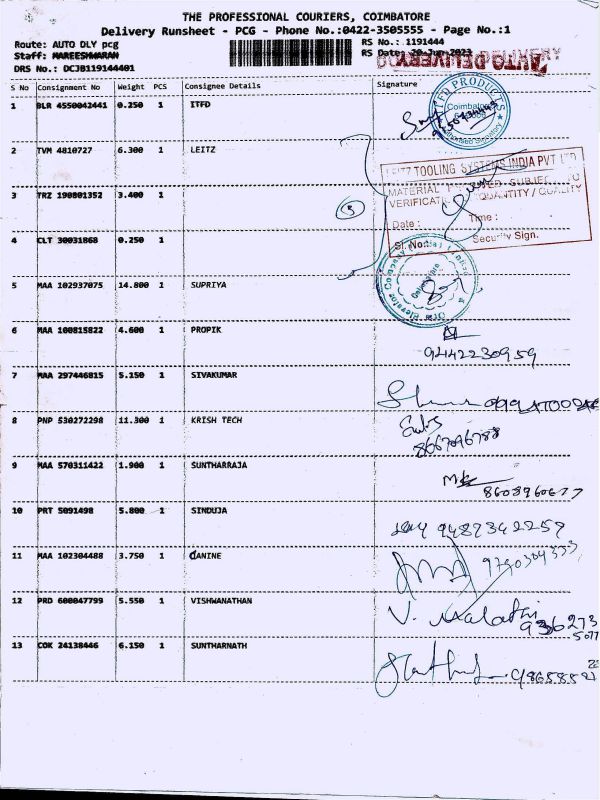 THE PROFESSIONAL COURIERS, COIMBATORE
Delivery Runsheet - PCG - Phone No.:0422-3505555 - Page No.:1
Route: AUTO DLY pcg RS No.: 1191444
Staff: MAREESHWARAN RS Date: 20-Jun-2023
AUTO DELIVERY
DRS No.: DCJB119144401
S No Consignment No Weight PCS Consignee Details Signature
1 BLR 4550042441 0.250 1 ITFD
Coimbatore
Authorised Signatory
2 TVM 4810727 6.300 1 LEITZ
LEITZ TOOLING SYSTEMS INDIA PVT LTD
MATERIAL SUBJECT TO
VERIFICATION QUANTITY / QUALITY
3 TRZ 190801352 3.400 1
3
Date : Time :
4 CLT 30031868 0.250 1
Sl. No: Security Sign.
Elevator Company
Coimbatore
5 MAA 102937075 14.800 1 SUPRIYA
6 MAA 100815822 4.600 1 PROPIK
9442230959
7 MAA 297446815 5.150 1 SIVAKUMAR
8 PNP 530272298 11.300 1 KRISH TECH
8667096788
9 MAA 570311422 1.900 1 SUNTHARRAJA
8608960677
10 PRT 5091498 5.800 1 SINDUJA
9487342257
11 MAA 102304488 3.750 1 DANINE
9790304333
12 PRD 600047799 5.550 1 VISHWANATHAN
V. Malathi
936273
5077
13 COK 24138446 6.150 1 SUNTHARNATH